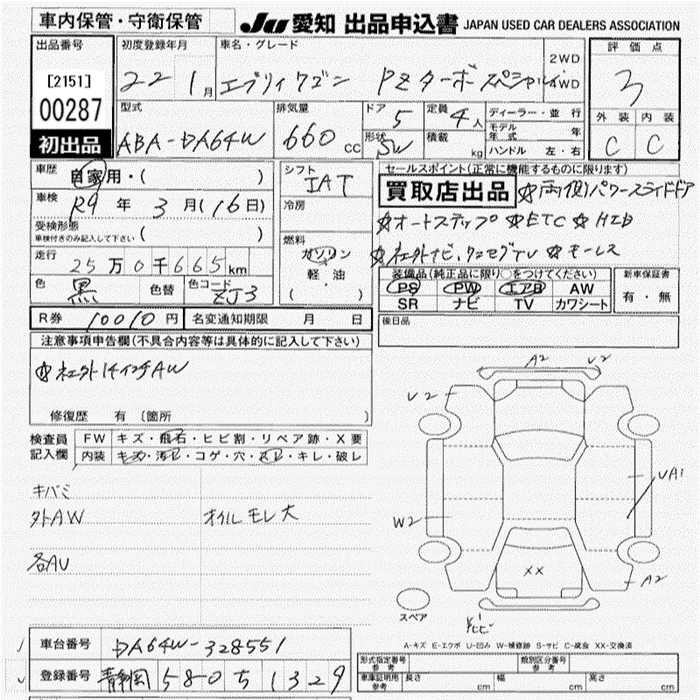 車内保管・守衛保管
Ju 愛知 出品申込書 JAPAN USED CAR DEALERS ASSOCIATION
出品番号
[2151]
00287
初出品
初度登録年月
22 1月
車名・グレード
エブリィワゴン PZターボスペシャル
2WD
4WD
評価点
3
外装 内装
C C
型式
ABA-DA64W
排気量
660 cc
ドア
5
形状
SW
定員
4人
積載
kg
ディーラー・並行
モデル年式 年
ハンドル 左・右
車歴
自家用・( )
車検
R9年 3月(16日)
受検形態
車検付きのみ記入して下さい ( )
走行
25万0千665km
色
黒
色替
色コード
ZJ3
シフト
IAT
冷房
燃料
ガソリン
軽・油
( ・ )
セールスポイント(正常に機能するものに限ります)
買取店出品 ☆両側パワースライドドア
☆オートステップ ☆ETC ☆HID
☆社外ナビ,ワンセグTV ☆キーレス
装備品(純正品に限り○をつけてください)
PS PW エアB AW
SR ナビ TV カワシート
新車保証書
有・無
後日品
R券 10010円 名変通知期限 月 日
注意事項申告欄(不具合内容等は具体的に記入して下さい)
☆社外14インチAW
修復歴 有 〔箇所 〕
検査員
記入欄
FW キズ・飛石・ヒビ割・リペア跡・X要
内装 キズ・汚レ・コゲ・穴・スレ・キレ・破レ
キバミ
外AW オイルモレ大
各AU
A2 V2
V2
UA1
W2
××
A2
スペア
A-キズ E-エクボ U-凹み W-補修跡 S-サビ C-腐食 XX-交換済
車台番号
DA64W-328551
登録番号
静岡 580 ち 1329
形式指定番号
参考
類別区分番号
参考
車庫証明用
参考
長さ cm 幅 cm 高さ cm